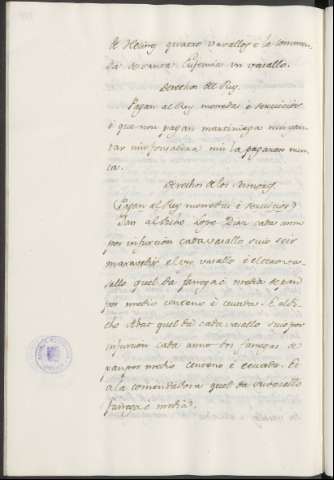 de Melins quatro vasallos e la comen-
da de santa Eufemia un vasallo.
Derechos del Rey.
Pagan al Rey monedas e servicios
e que non pagan martiniega nin yan-
tar nin fonsadera nin la pagaron nun-
ca.
Derechos de los Señores.
(Pagan al Rey monedas e servicios)
Dan al dicho Lope Diaz cada anno
por infurcion cada vasallo suio seis
maravedis el un vasallo e el otro va-
sallo quel da fanega e media de pan
por medio centeno e cevada. E al di-
cho Abat quel da cada vasallo suio por
infurcion cada anno dos fanegas de
pan por medio centeno e cevada. E
a la comendadora quel da su vasallo
fanega e media.